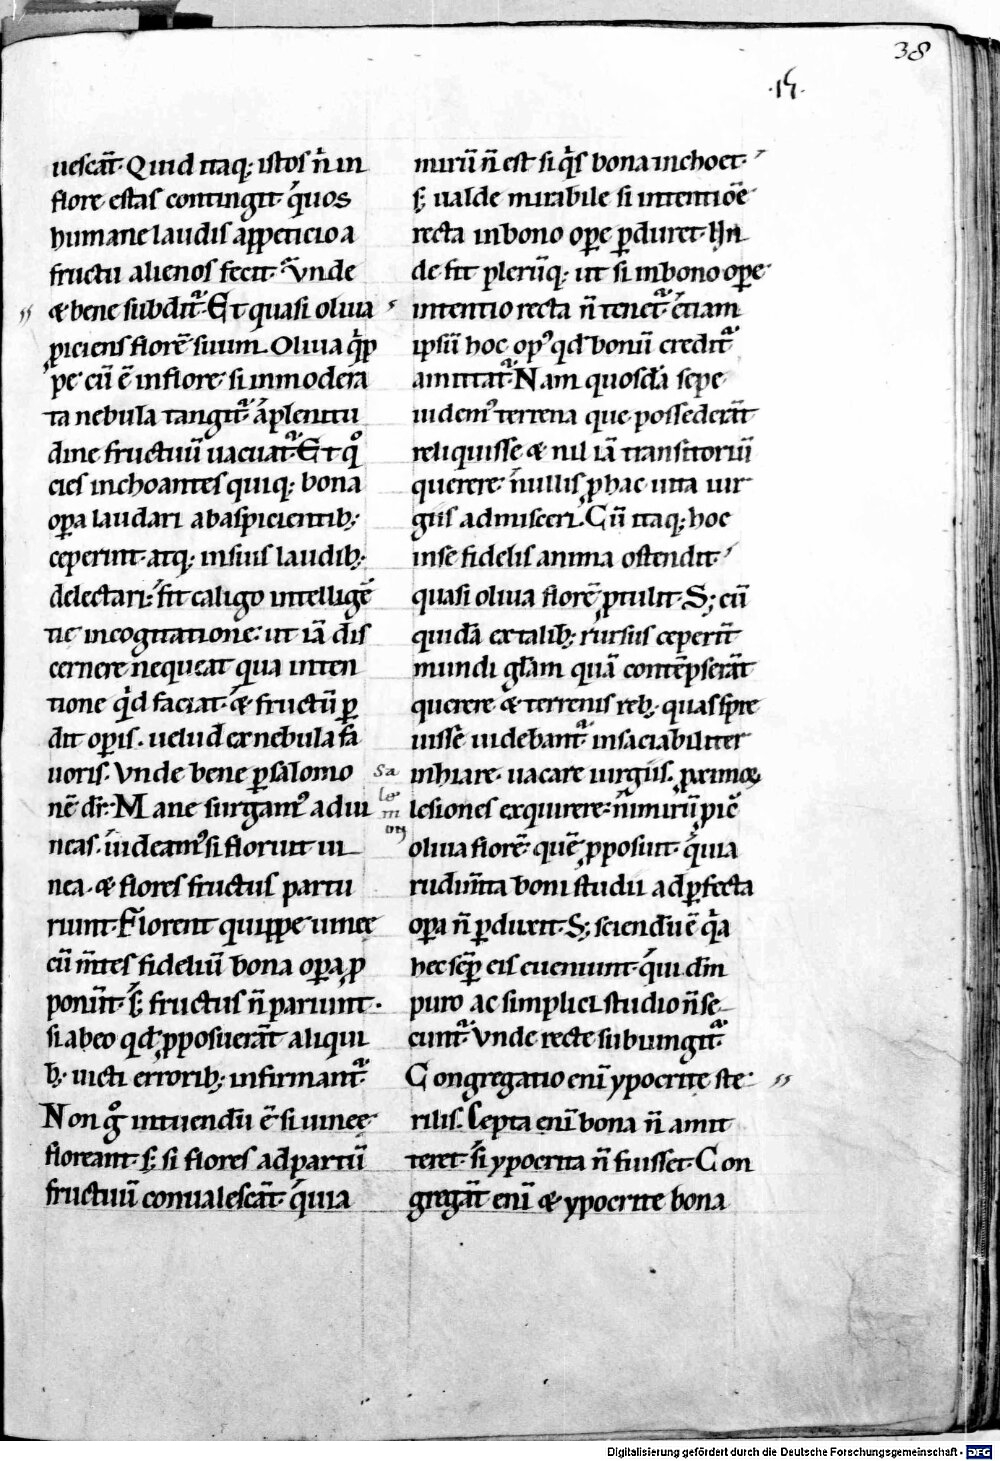 38
·15·
uescāt. Quid itaq; istos nͥ in
flore estas contingit. quos
humane laudis appeticio a
fructu alienos fecit. Vnde
& bene subditᷣ. Et quasi oliua
ꝓiciens florē suum. Oliua qͥp
pe cū ē in flore. si inmodera
ta nebula tangitᷣ. a plenitu
dine fructuū uacuatᷣ. Et qͦ
cies inchoantes quiq; bona
oꝑa laudari ab aspicientib;
ceperint. atq; in suis laudib;
delectari: fit caligo intelligē
tie in cogitatione. ut iā dis
cernere nequeat qua inten
tione qͥd faciat. & fructū ꝑ
dit oꝑis. uelud ex nebula fa
uoris. Vnde bene ꝑ salomo
nē dr̄. Mane surgamꝰ ad ui
neas. uideamꝰ si floruit ui
nea. & flores fructus partu
riunt. Florent quippe uinee
cū m̄tes fideliū bona oꝑa ꝓ
ponūt. s; fructus n̄ pariunt.
si ab eo qd̄ ꝓposuerāt aliqui
b; uicti errorib; infirmantᷣ.
Non gͦ intuendū ē si uinee
floreant. s; si flores ad partū
fructuū conualescāt. quia
Sa
lo
m
oīs
mirū n̄ est si qͥs bona inchoet.
s; ualde mirabile si intentiōe
recta in bono oꝑe ꝑduret. Un
de fit plerūq; ut si in bono oꝑe
intentio recta n̄ tenetᷣ. etiam
ipsū hoc opꝰ qd̄ bonū creditᷣ
amittatᷣ. Nam quosdā sepe
uidemꝰ terrena que possederāt
reliquisse & nil iā transitoriū
querere. nullis ꝓ hac uita iur
giis admisceri. Cū itaq; hoc
in se fidelis anima ostendit.
quasi oliua florē ꝓtulit. S; cū
quidā ex talib; rursus ceperīt
mundi glām quā contēpserāt
querere. & terrenis reb; quas spre
uisse uidebantᷣ. insaciabiliter
inhiare. uacare iurgiis. ꝓximoꝝ
lesiones exquirere: nimirū ꝓiē
oliua florē. quē ꝓposuit. quia
rudim̄ta boni studii ad ꝑfecta
oꝑa n̄ ꝑduxit. S; sciendū ē qͥa
hec sēꝑ eis eueniunt. qui dm̄
puro ac simplici studio n̄ se
cuntᷣ. Vnde recte subiungitᷣ.
Congregatio enī ypocrite ste
rilis. Cepta enī bona n̄ amit
teret. si ypocrita n̄ fuisset. Con
gregāt enī & ypocrite bona
Digitalisierung gefördert durch die Deutsche Forschungsgemeinschaft - DFG